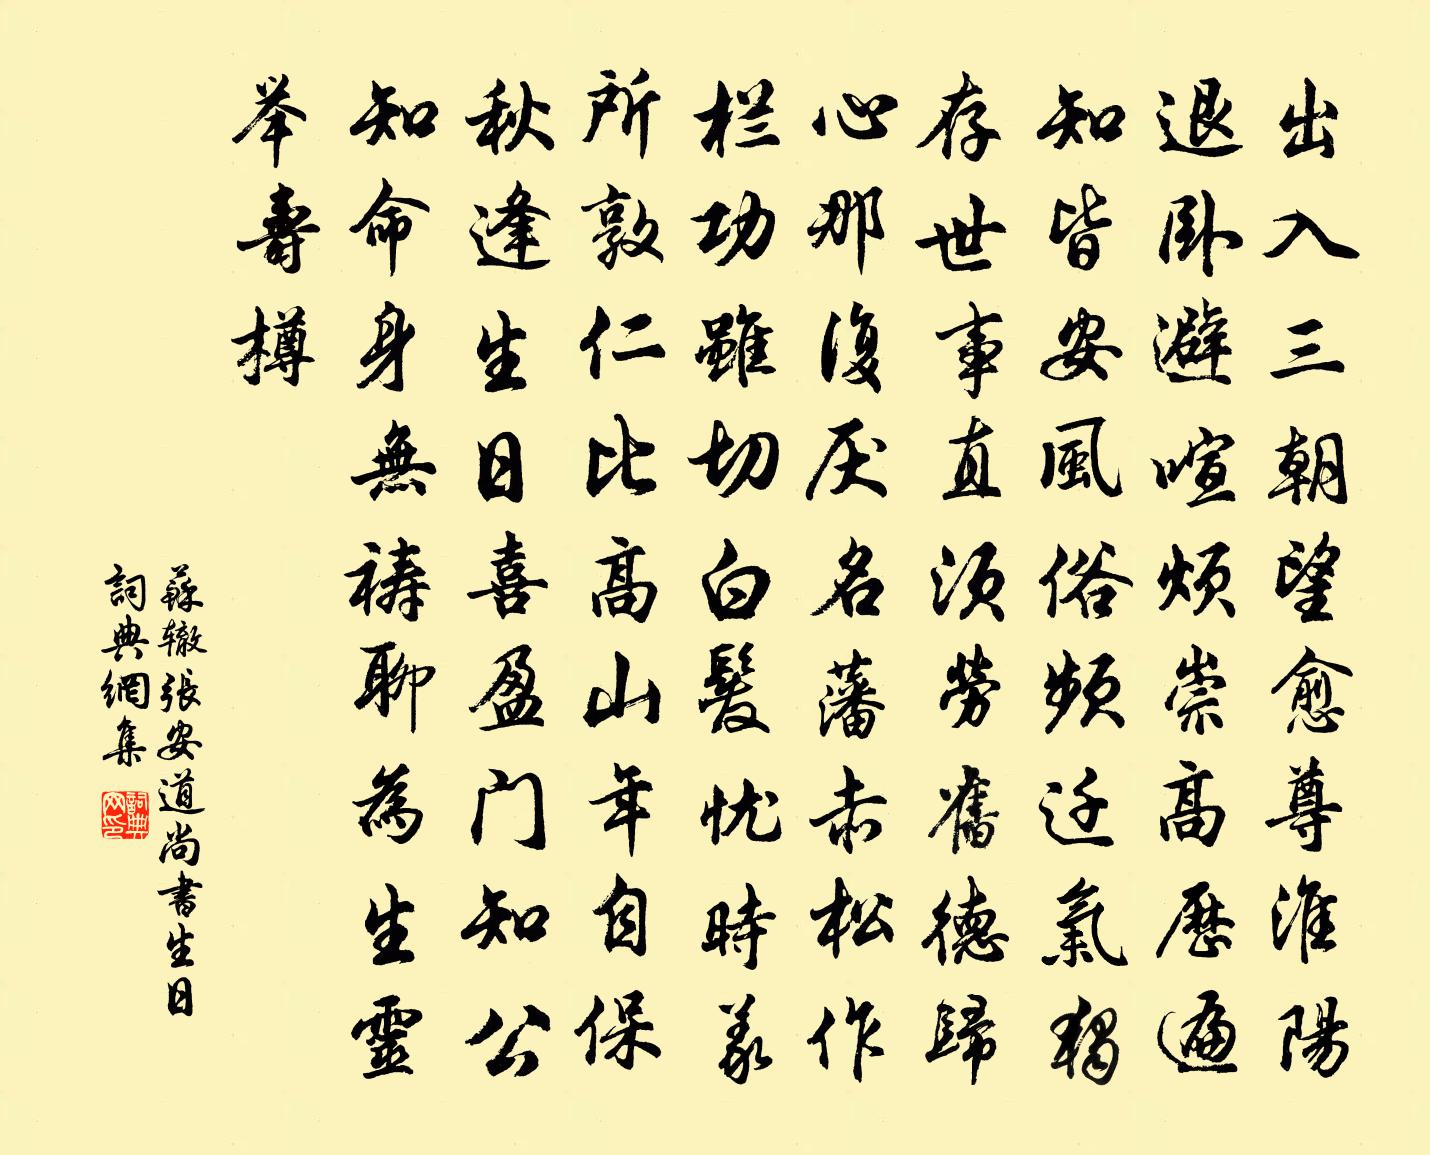 出入三朝望愈尊淮陽
退卧避喧烦崇高歷遍
知皆安風俗频迁氣獨
存世事直须勞舊德歸
心那復厌名藩赤松作
栏功雖切白髮忧時義
所敦仁比高山年自保
秋逢生日喜盈门知公
知命身無禱聊為生靈
举壽樽
蘇辙張安道尚書生日
詞典網集
詞典网印